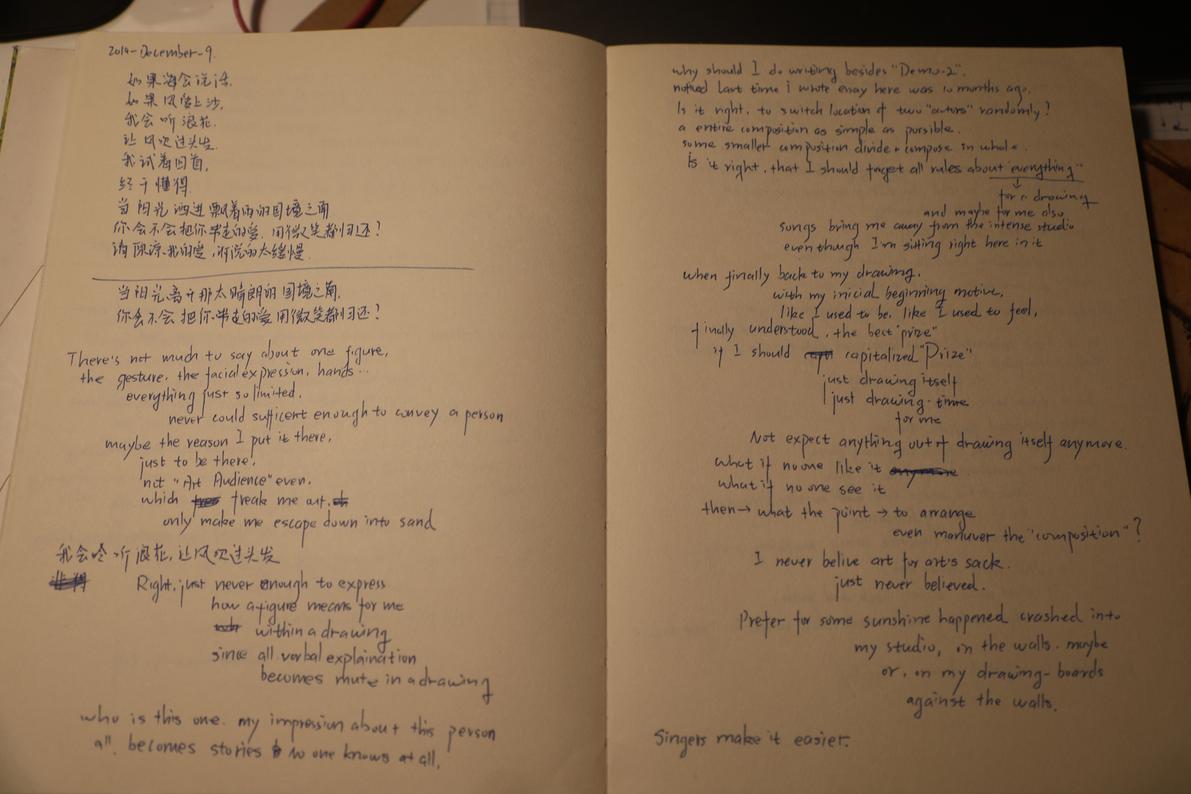 2014-December-9.
如果海会说话.
如果风爱上沙.
我会听浪花.
让风吹过头发.
我试着回首,
终于懂得
当阳光洒进飘着雨的国境之南
你会不会把你带走的爱,用微笑都归还?
请原谅我的爱,诉说的太缓慢.
当阳光离开那太晴朗的国境之南.
你会不会把你带走的爱用微笑都归还?
There's not much to say about one figure,
the gesture. the facial expression, hands...
everything just so limited.
never could sufficent enough to convey a person
maybe the reason I put it there,
just to be there.
not "Art Audience" even.
which freak me out.
only make me escape down into sand
我会听浪花,让风吹过头发
Right, just never enough to express
how a figure means for me
within a drawing
since all verbal explaination
becomes mute in a drawing
who is this one. my impression about this person
all. becomes stories no one knows at all.
why should I do writing besides "Demo-2".
noticed last time i wrote essay here was 10 months ago.
Is it right, to switch location of two "actors" randomly?
a entire composition as simple as possible.
some smaller composition divide + compose in whole.
Is it right, that I should forget all rules about "everything"
↓
for a drawing
and maybe for me also
songs bring me away from the intense studio
even though I'm sitting right here in it
when finally back to my drawing.
with my inicial beginning motive,
like I used to be. like I used to feel,
finally understood, the best "prize"
if I should capitalized "Prize"
just drawing itself
just drawing time
for me
Not expect anything out of drawing itself anymore.
what if no one like it anymore
what if no one see it
then→ what the point → to arrange
even manuver the "composition"?
I never belive art for art's sack.
just never believed.
Prefer for some sunshine happened crashed into
my studio, on the walls. maybe
or, on my drawing-boards
against the walls.
Singers make it easier.